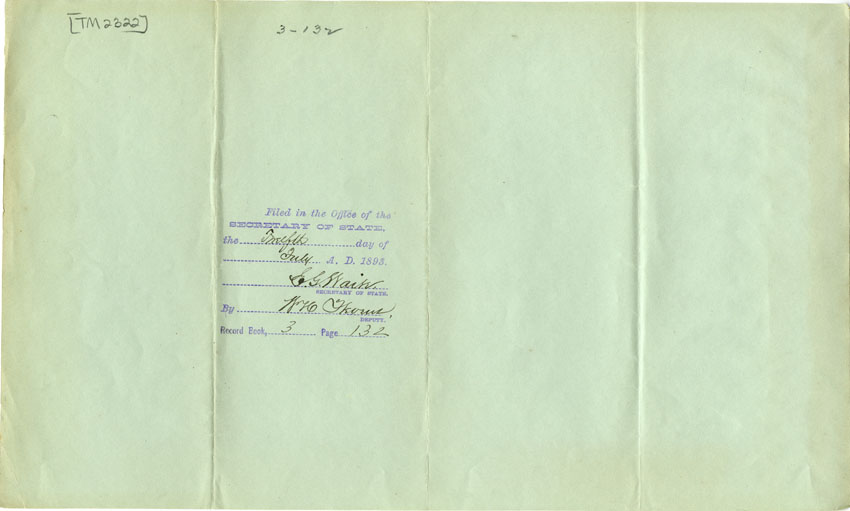 [TM2322]
3-132
Filed in the Office of the
SECRETARY OF STATE,
the Twelfth day of
July A. D. 1895.
L. G. Waite
SECRETARY OF STATE.
By W H
DEPUTY.
Record Book, 3 Page 132